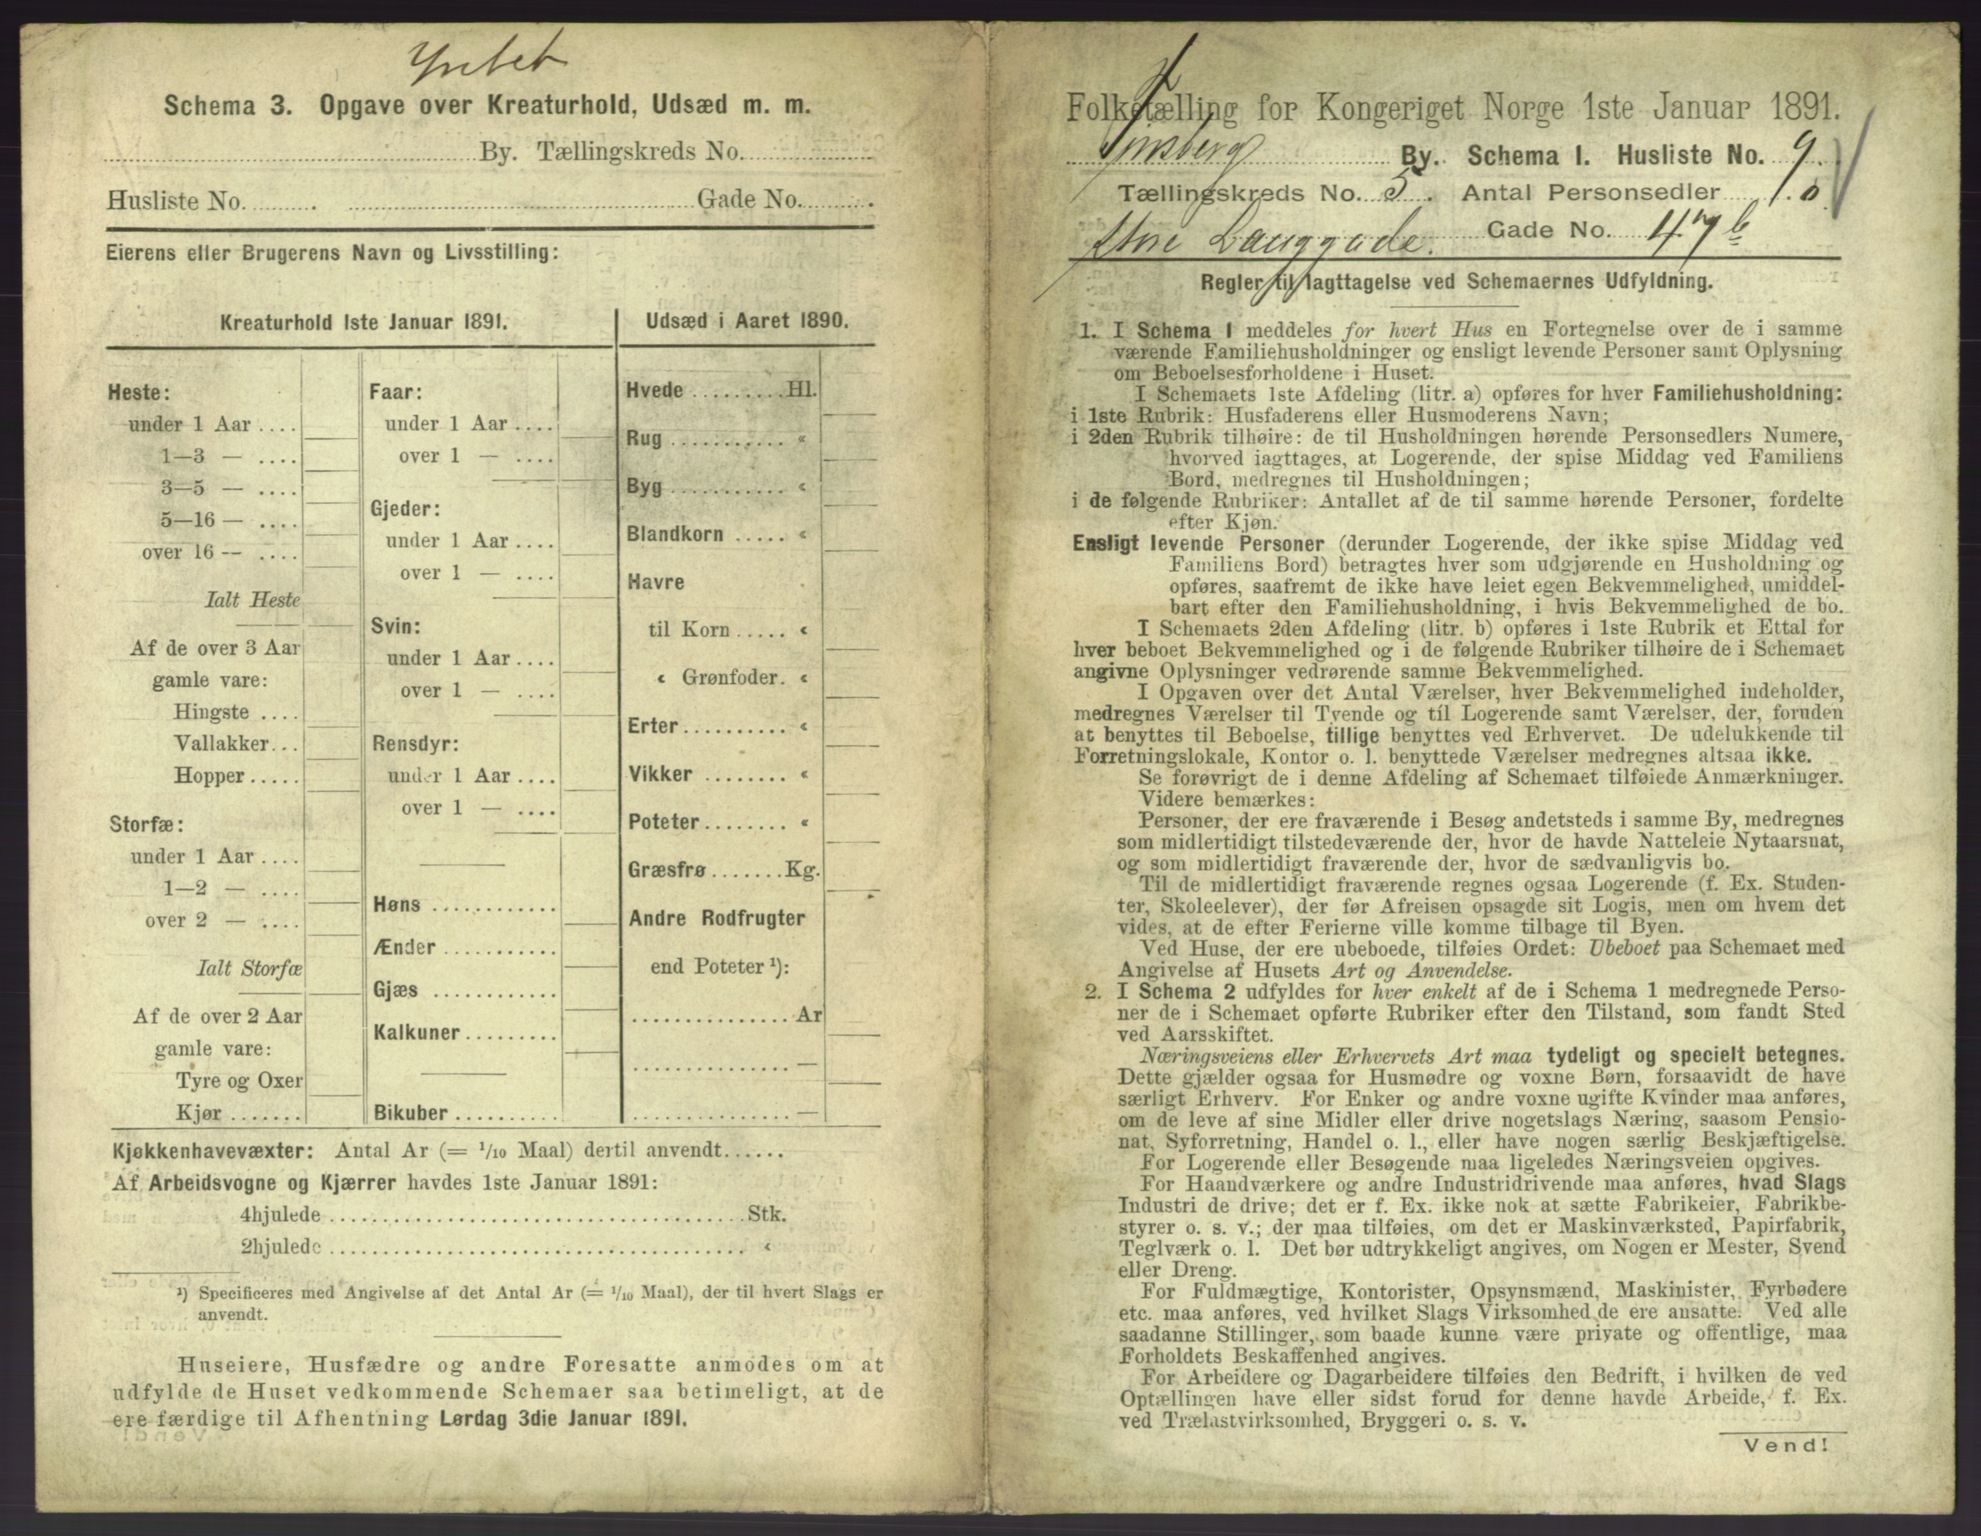 Yntet
Schema 3. Opgave over Kreaturhold, Udsæd m. m.
By. Tællingskreds No.
Husliste No. Gade No.
Eierens eller Brugerens Navn og Livsstilling:
Kreaturhold 1ste Januar 1891.
Heste:
under 1 Aar
1—3 —
3—5 —
5—16 —
over 16 —
Ialt Heste
Af de over 3 Aar
gamle vare:
Hingste
Vallakker
Hopper
Storfæ:
under 1 Aar
1—2 —
over 2 —
Ialt Storfæ
Af de over 2 Aar
gamle vare:
Tyre og Oxer
Kjør
Faar:
under 1 Aar
over 1 —
Gjeder:
under 1 Aar
over 1 —
Svin:
under 1 Aar
over 1 —
Rensdyr:
under 1 Aar
over 1 —
Høns
Ænder
Gjæs
Kalkuner
Bikuber
Udsæd i Aaret 1890.
Hvede Hl.
Rug «
Byg «
Blandkorn «
Havre
til Korn «
« Grønfoder. «
Erter «
Vikker «
Poteter «
Græsfrø Kg.
Andre Rodfrugter
end Poteter ¹):
Ar
—
—
Kjøkkenhavevæxter: Antal Ar (= 1/10 Maal) dertil anvendt
Af Arbeidsvogne og Kjærrer havdes 1ste Januar 1891:
4hjulede Stk.
2hjulede «
¹) Specificeres med Angivelse af det Antal Ar (= 1/10 Maal), der til hvert Slags er
anvendt.
Huseiere, Husfædre og andre Foresatte anmodes om at
udfylde de Huset vedkommende Schemaer saa betimeligt, at de
ere færdige til Afhentning Lørdag 3die Januar 1891.
Folketælling for Kongeriget Norge 1ste Januar 1891.
Tønsberg By. Schema I. Husliste No. 9
Tællingskreds No. 5. Antal Personsedler 10
Store Langgade. Gade No. 47b
Regler til Iagttagelse ved Schemaernes Udfyldning.
1. I Schema I meddeles for hvert Hus en Fortegnelse over de i samme
værende Familiehusholdninger og ensligt levende Personer samt Oplysning
om Beboelsesforholdene i Huset.
I Schemaets 1ste Afdeling (litr. a) opføres for hver Familiehusholdning:
i 1ste Rubrik: Husfaderens eller Husmoderens Navn;
i 2den Rubrik tilhøire: de til Husholdningen hørende Personsedlers Numere,
hvorved iagttages, at Logerende, der spise Middag ved Familiens
Bord, medregnes til Husholdningen;
i de følgende Rubriker: Antallet af de til samme hørende Personer, fordelte
efter Kjøn.
Ensligt levende Personer (derunder Logerende, der ikke spise Middag ved
Familiens Bord) betragtes hver som udgjørende en Husholdning og
opføres, saafremt de ikke have leiet egen Bekvemmelighed, umiddel-
bart efter den Familiehusholdning, i hvis Bekvemmelighed de bo.
I Schemaets 2den Afdeling (litr. b) opføres i 1ste Rubrik et Ettal for
hver beboet Bekvemmelighed og i de følgende Rubriker tilhøire de i Schemaet
angivne Oplysninger vedrørende samme Bekvemmelighed.
I Opgaven over det Antal Værelser, hver Bekvemmelighed indeholder,
medregnes Værelser til Tyende og til Logerende samt Værelser, der, foruden
at benyttes til Beboelse, tillige benyttes ved Erhvervet. De udelukkende til
Forretningslokale, Kontor o. l. benyttede Værelser medregnes altsaa ikke.
Se forøvrigt de i denne Afdeling af Schemaet tilføiede Anmærkninger.
Videre bemærkes:
Personer, der ere fraværende i Besøg andetsteds i samme By, medregnes
som midlertidigt tilstedeværende der, hvor de havde Natteleie Nytaarsnat,
og som midlertidigt fraværende der, hvor de sædvanligvis bo.
Til de midlertidigt fraværende regnes ogsaa Logerende (f. Ex. Studen-
ter, Skoleelever), der før Afreisen opsagde sit Logis, men om hvem det
vides, at de efter Ferierne ville komme tilbage til Byen.
Ved Huse, der ere ubeboede, tilføies Ordet: Ubeboet paa Schemaet med
Angivelse af Husets Art og Anvendelse.
2. I Schema 2 udfyldes for hver enkelt af de i Schema 1 medregnede Perso-
ner de i Schemaet opførte Rubriker efter den Tilstand, som fandt Sted
ved Aarsskiftet.
Næringsveiens eller Erhvervets Art maa tydeligt og specielt betegnes.
Dette gjælder ogsaa for Husmødre og voxne Børn, forsaavidt de have
særligt Erhverv. For Enker og andre voxne ugifte Kvinder maa anføres,
om de leve af sine Midler eller drive nogetslags Næring, saasom Pensio-
nat, Syforretning, Handel o. l., eller have nogen særlig Beskjæftigelse.
For Logerende eller Besøgende maa ligeledes Næringsveien opgives.
For Haandværkere og andre Industridrivende maa anføres, hvad Slags
Industri de drive; det er f. Ex. ikke nok at sætte Fabrikeier, Fabrikbe-
styrer o. s. v.; der maa tilføies, om det er Maskinværksted, Papirfabrik,
Teglværk o. l. Det bør udtrykkeligt angives, om Nogen er Mester, Svend
eller Dreng.
For Fuldmægtige, Kontorister, Opsynsmænd, Maskinister, Fyrbødere
etc. maa anføres, ved hvilket Slags Virksomhed de ere ansatte. Ved alle
saadanne Stillinger, som baade kunne være private og offentlige, maa
Forholdets Beskaffenhed angives.
For Arbeidere og Dagarbeidere tilføies den Bedrift, i hvilken de ved
Optællingen have eller sidst forud for denne havde Arbeide, f. Ex.
ved Trælastvirksomhed, Bryggeri o. s. v.
Vend!